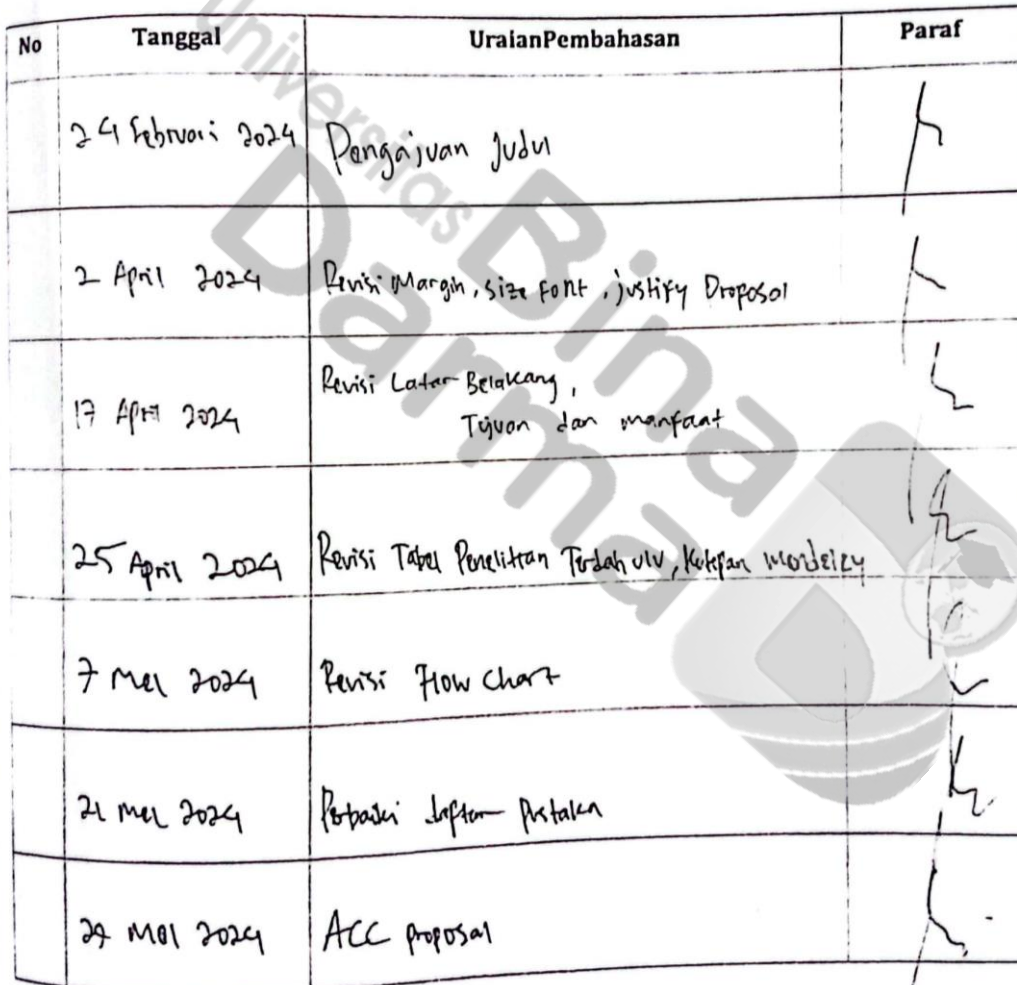 No Tanggal UraianPembahasan Paraf
Universitas
Bina
Darma
24 Februari 2024 Pengajuan Judul
2 April 2024 Revisi Margin, size font, justify Proposal
17 April 2024 Revisi Latar Belakang,
Tujuan dan manfaat
25 April 2024 Revisi Tabel Penelitian Terdahulu, Kutipan mendeley
7 Mei 2024 Revisi Flow Chart
21 Mei 2024 Perbaiki daftar Pustaka
Mei 2024 ACC proposal